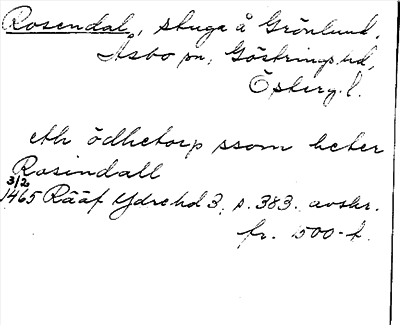 Rosendal, stuga å Grönlund,
Åsbo sn, Göstrings hd,
Österg. l.
eth ödhetorp ssom heter
Rosindall
3/2
1465 Rääf Ydre hd 3, s. 383. avskr.
fr. 1500-t.